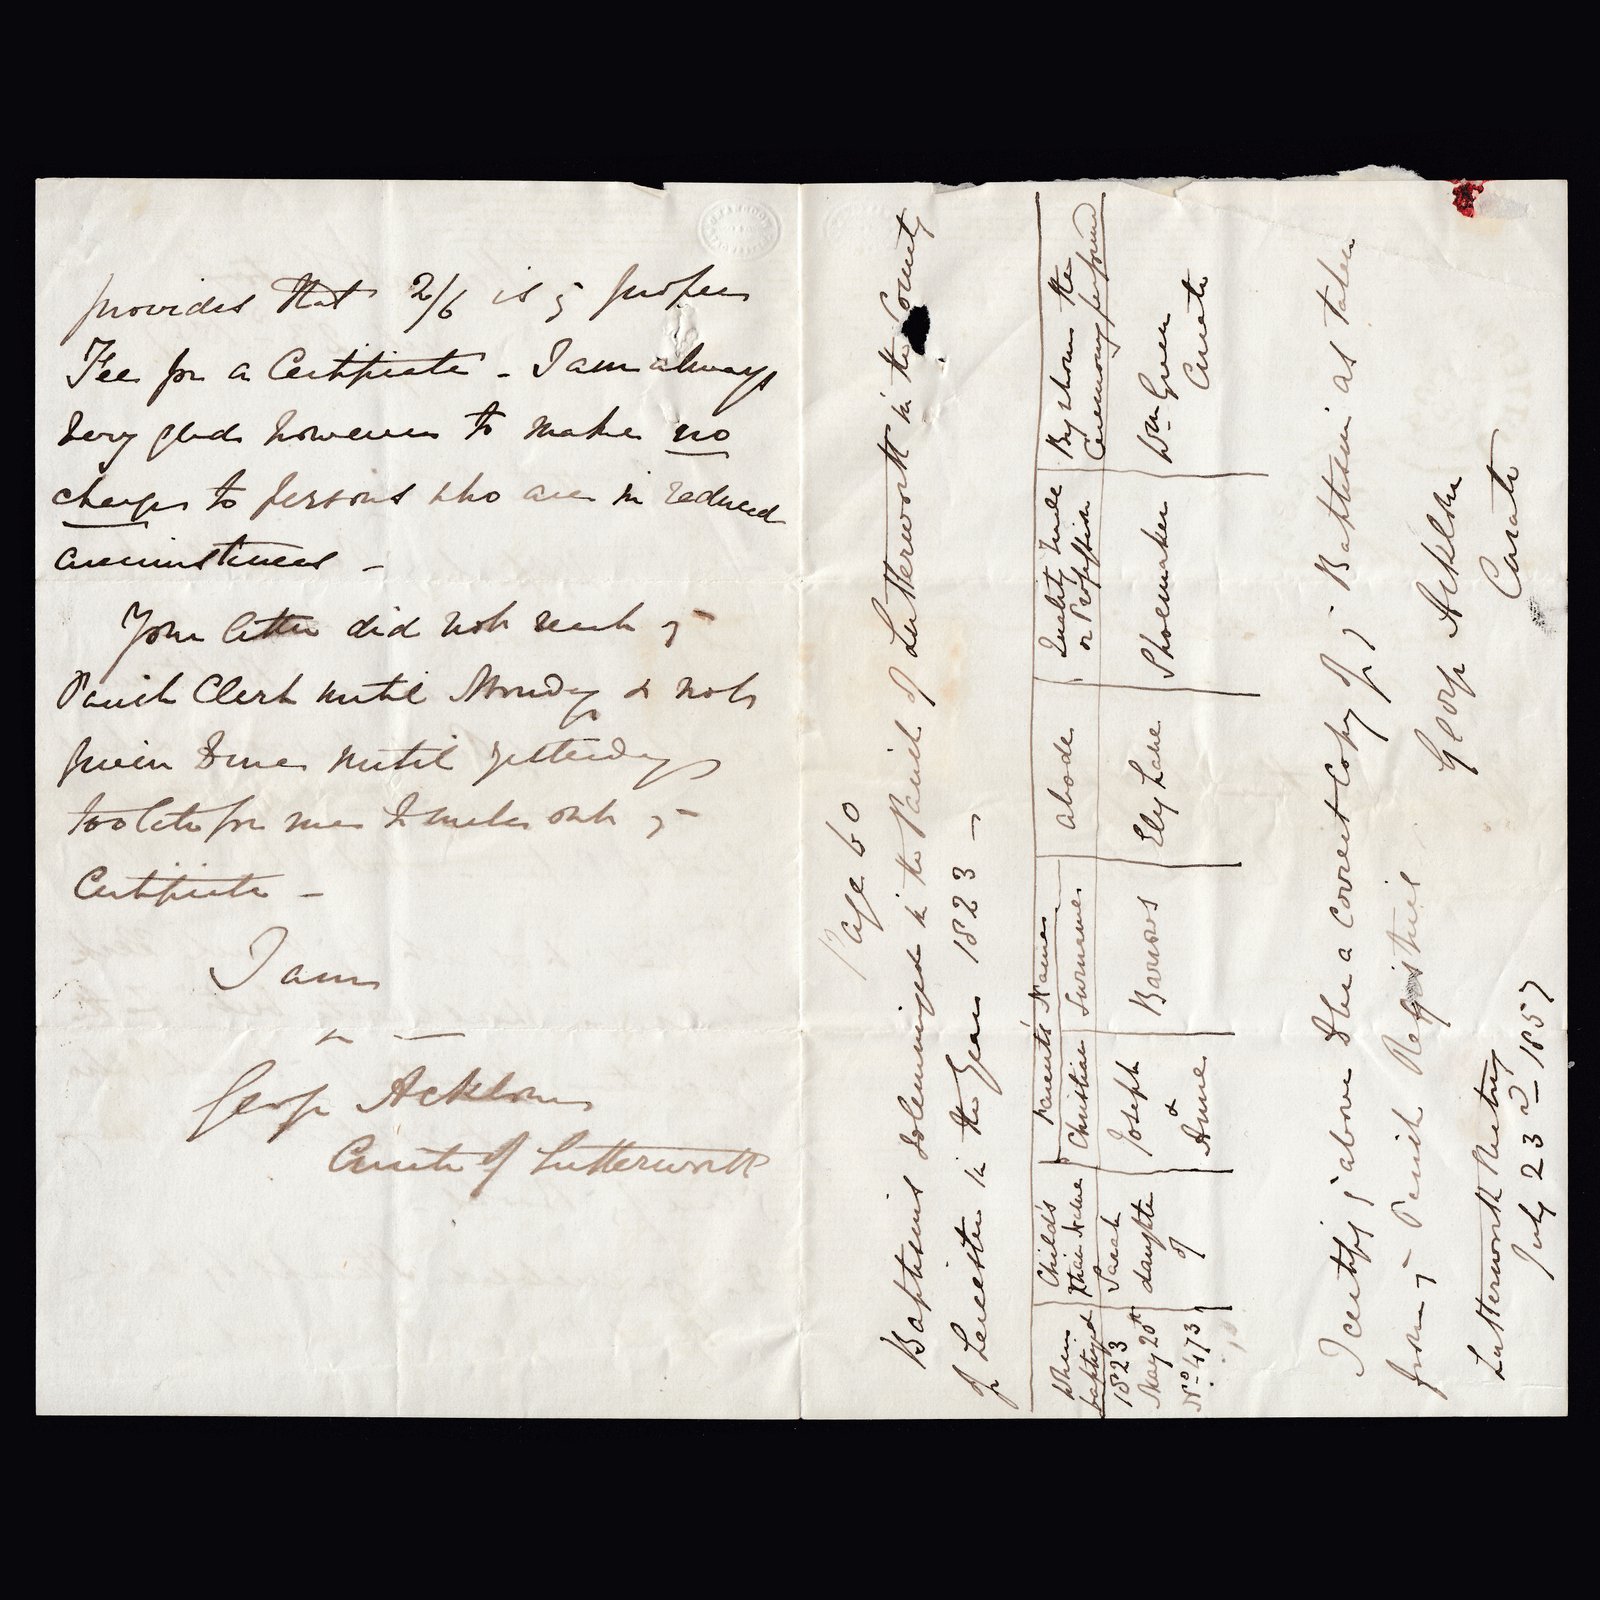 provides that 2/6 is ye proper
Fee for a Certificate - I am always
very glad however to make no
charge to persons who are in reduced
circumstances -
Your letter did not reach ye
Parish Clerk until Monday & not
given to me until yesterday
too late for me to make out ye
Certificate -
I am
George Acklom
Curate of Lutterworth
Page 60
Baptisms solemnized in the Parish of Lutterworth in the County
of Leicester in the Year 1823 -
When baptized
Child's Xtian Name
Parents' Names
Christian
Surname
Abode
Quality Trade or Profession
By whom the Ceremony performed
1823
May 20th
No 473
Sarah daughter of
Joseph & Anne
Barrows
Ely Lane
Shoemaker
Wm Green
Curate
I certify ye above to be a correct Copy of ye Baptism as taken
from ye Parish Register
George Acklom
Curate
Lutterworth Rectory
July 23rd 1857